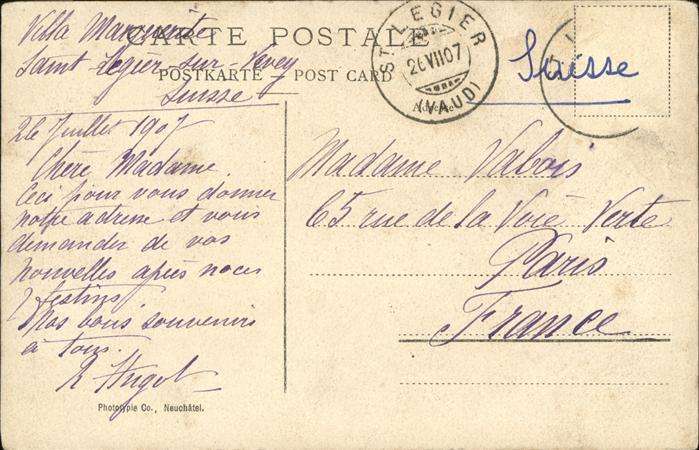 CARTE POSTALE
POSTKARTE — POST CARD
Adresse
ST. LÉGIER
26 VII 07
(VAUD)
Suisse
Villa Marguerite
Saint Légier-sur-Vevey
Suisse
26 Juillet 1907
Chère Madame
Ceci pour vous donner
notre adresse et vous
demander de vos
nouvelles après noces
& festins.
Nos bons souvenirs
à tous.
Hugot
Photoypie Co., Neuchâtel.
Madame Valois
65 rue de la Voie Verte
Paris
France